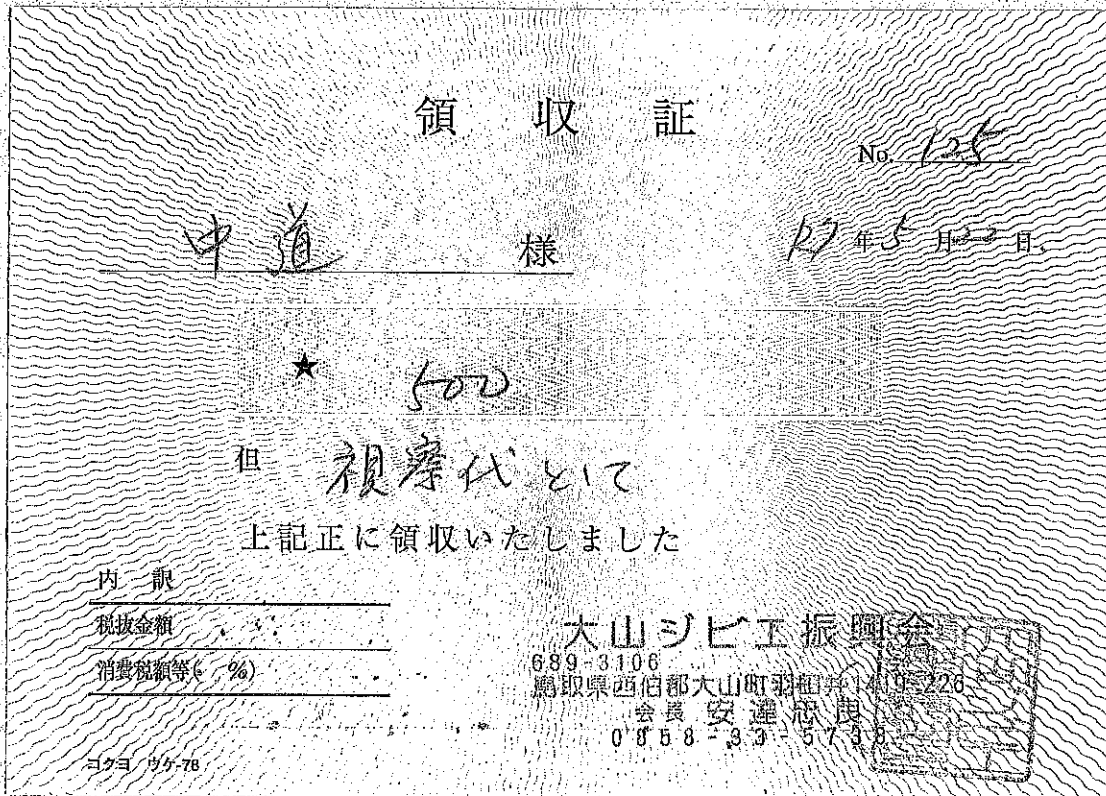 領収証
No. 125
中道 様
27年5月22日
★ 500
但 視察代として
上記正に領収いたしました
内訳
税抜金額
消費税額等( %)
大山ジビエ振興会
689-3106
鳥取県西伯郡大山町羽田井1419-226
会長 安達忠良
0858-33-5738
コクヨ ウケ-78